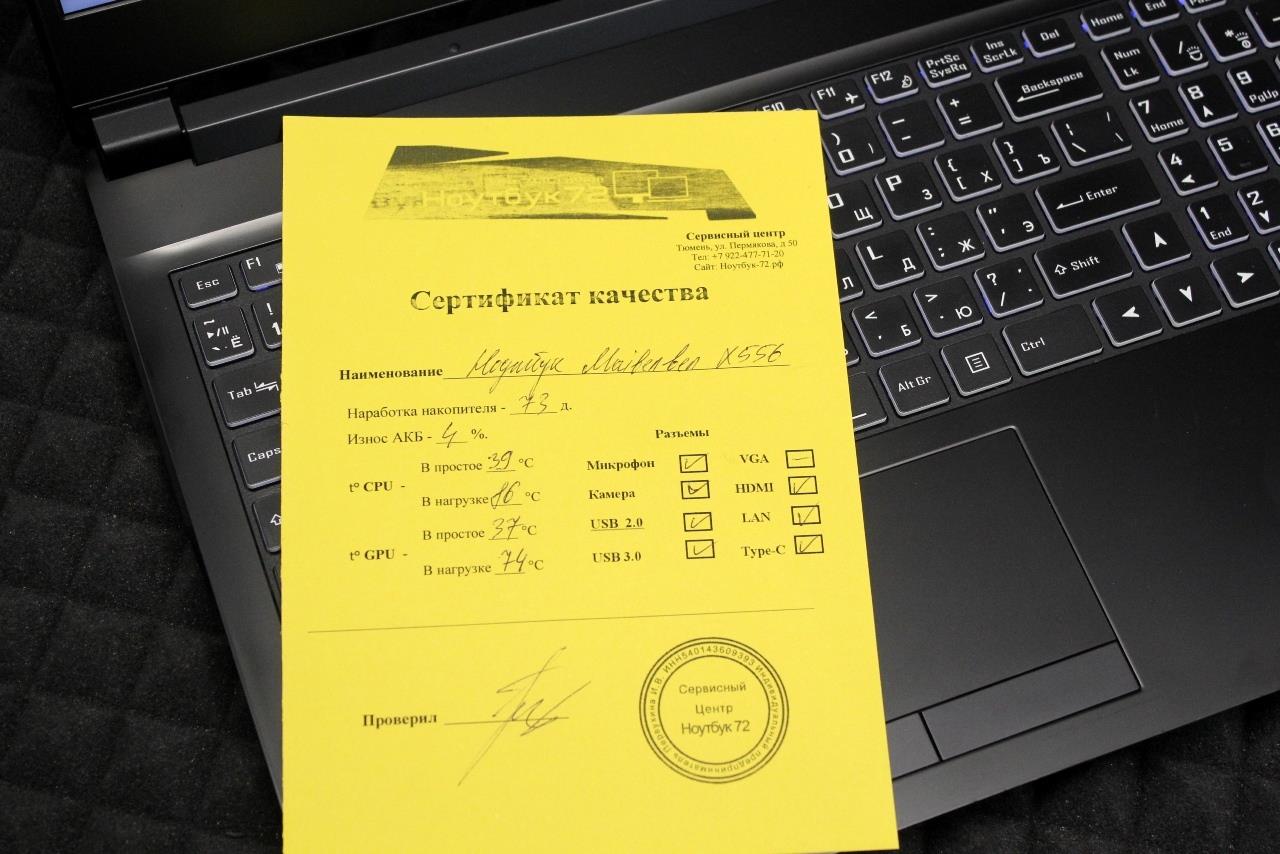 Ноутбук 72
Сервисный центр
Тюмень, ул. Пермякова, д 50
Тел: +7 922-477-71-20
Сайт: Ноутбук-72.рф
Сертификат качества
Наименование Ноутбук Maibenben X556
Наработка накопителя - 73 д.
Износ АКБ - 4 %.
Разъемы
t° CPU -
В простое 39 °C
В нагрузке 86 °C
t° GPU -
В простое 37 °C
В нагрузке 74 °C
Микрофон
VGA
Камера
HDMI
USB 2.0
LAN
USB 3.0
Type-C
Проверил
Индивидуальный предприниматель И.В. ИНН540143609393
Сервисный
Центр
Ноутбук 72
Esc
F1
F10
F11
F12
PrtSc
SysRq
Ins
ScrLk
Del
Home
End
Backspace
Num
Lk
7
Home
8
9
PgUp
4
5
6
1
End
2
Enter
Shift
Ctrl
Alt Gr
Tab
Caps
Ё
1
) 0
- _
+ =
P З
{ [ Х
} ] Ъ
Щ
L Д
: ; Ж
" ' Э
Л
< , Б
> . Ю
? /